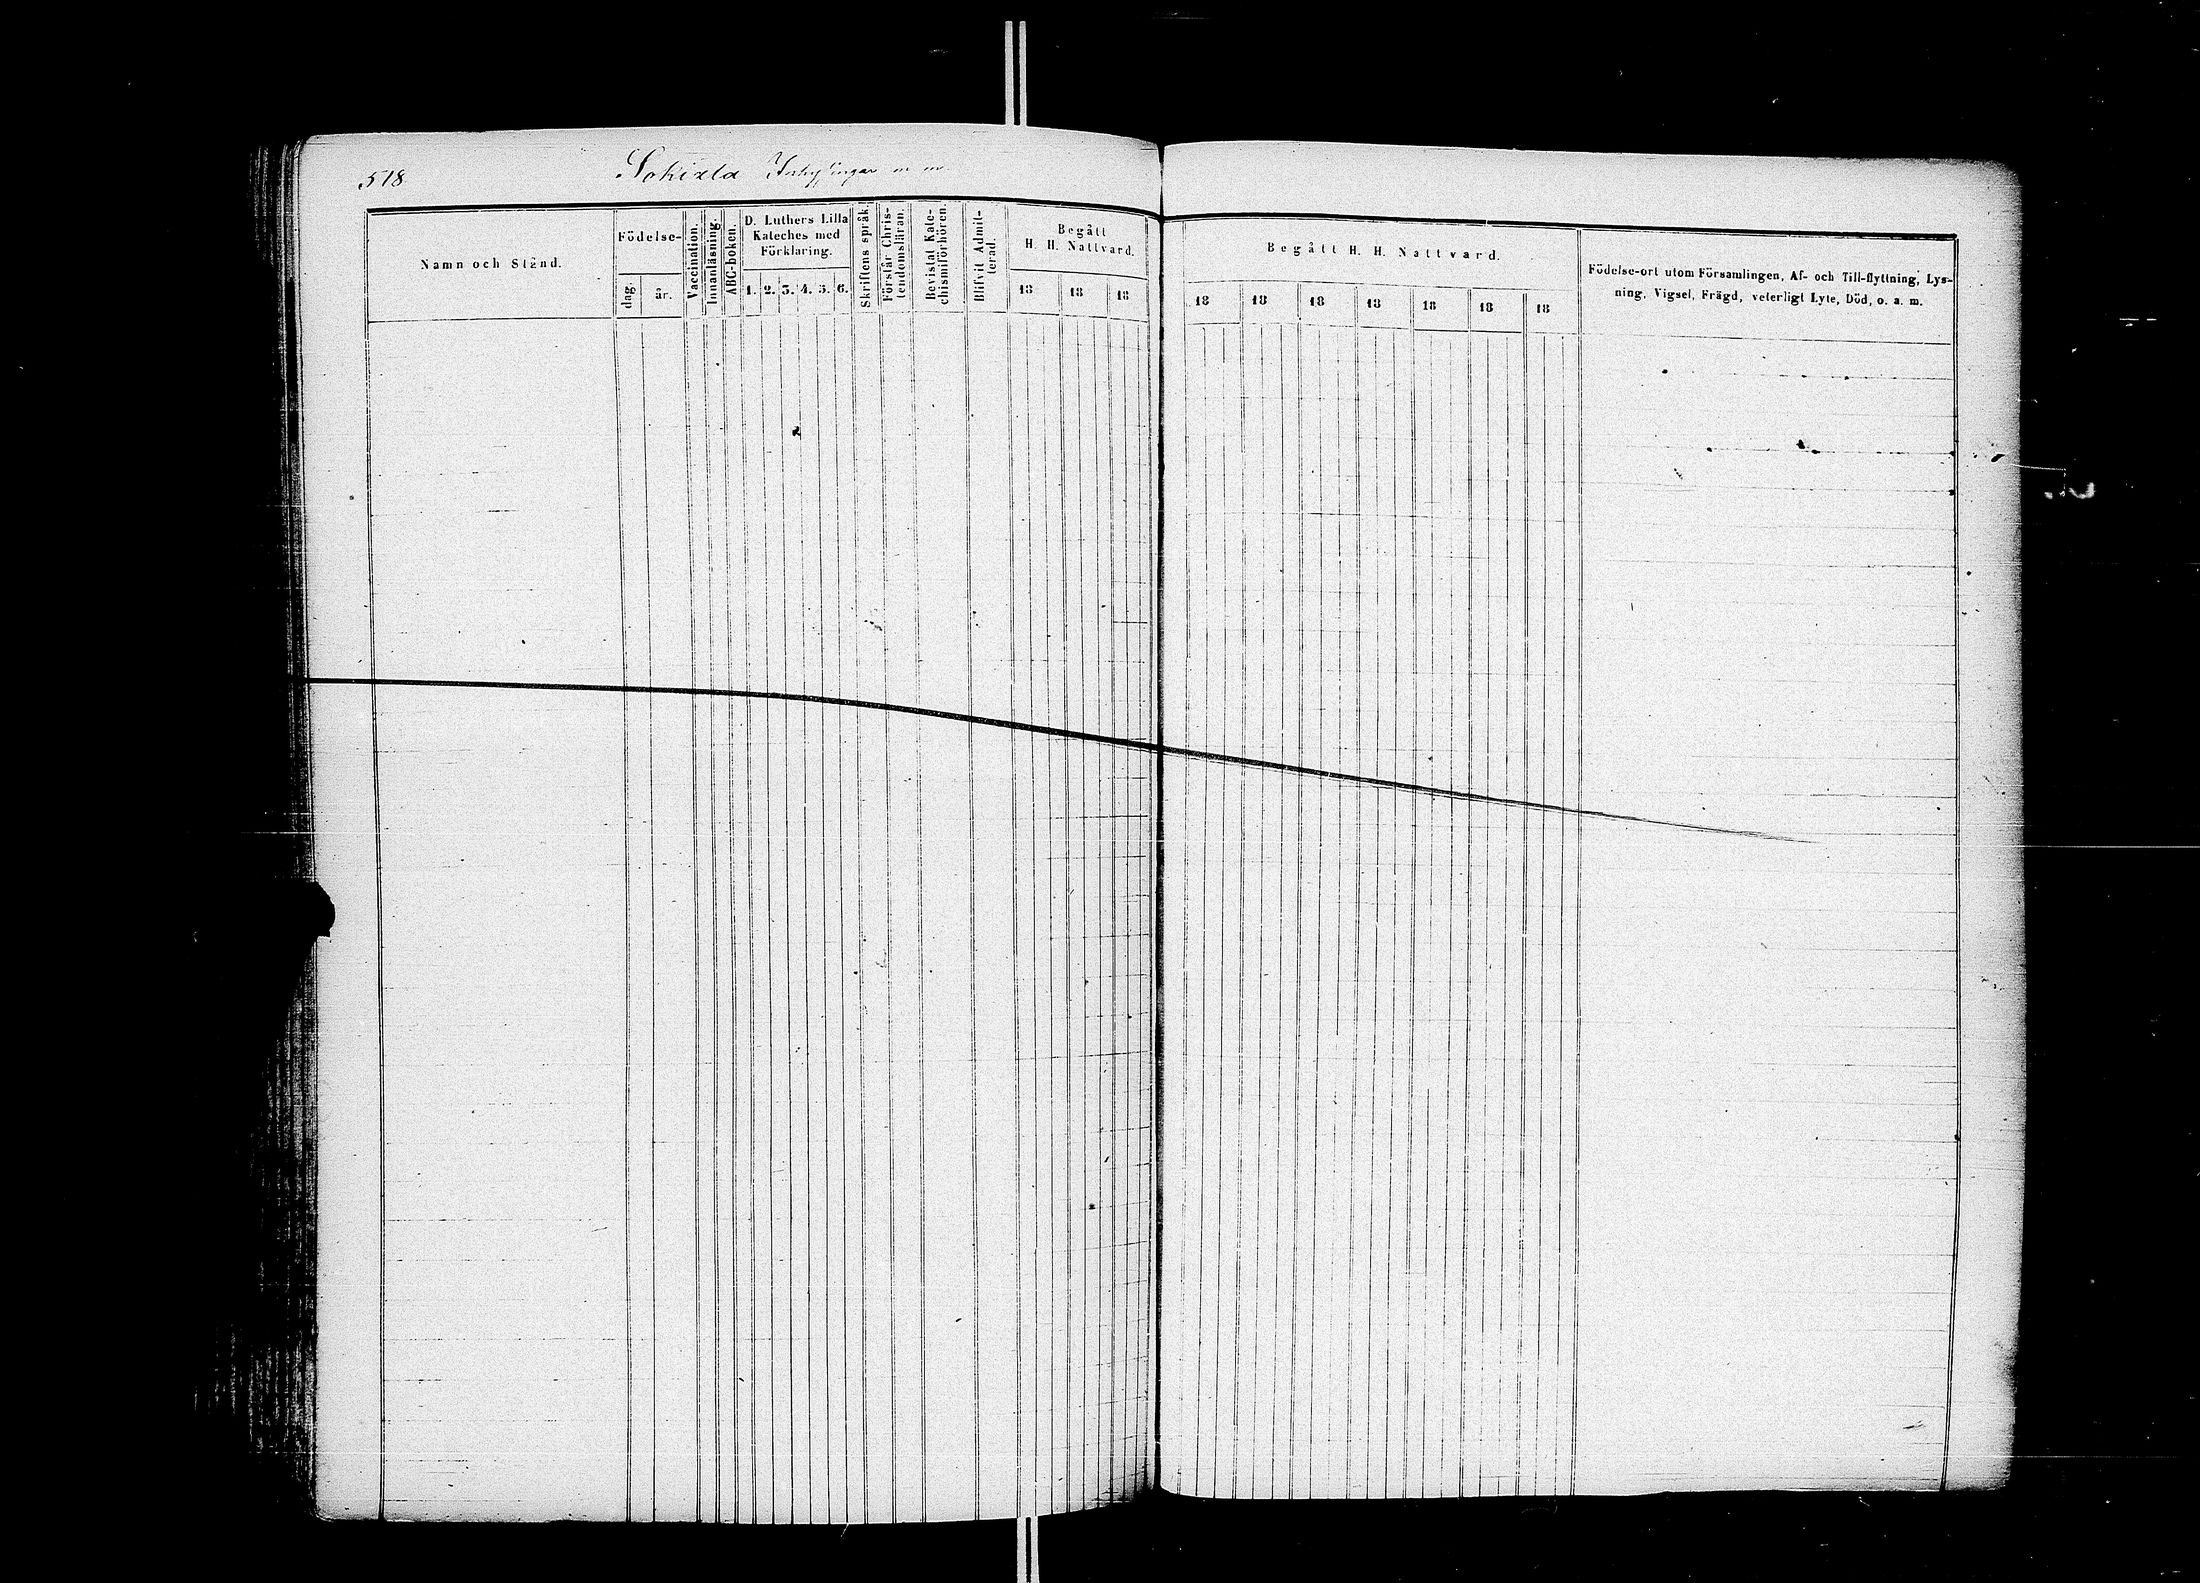 518
Sokixla Inhysingar m m.
Namn och Stånd.
Födelse-
dag.
år.
Vaccination.
Innanläsning.
ABC-boken.
D. Luthers Lilla
Kateches med
Förklaring.
1. 2. 3. 4. 5. 6.
Skriftens språk.
Förstår Chris-
tendomsläran.
Bevistat Kate-
chismiförhören.
Blifvit Admit-
terad.
Begått
H. H. Nattvard.
18 18 18
Begått H. H. Nattvard.
18 18 18 18 18 18 18
Födelse-ort utom Församlingen, Af- och Till-flyttning, Lys-
ning, Vigsel, Frägd, veterligt Lyte, Död, o. a. m.